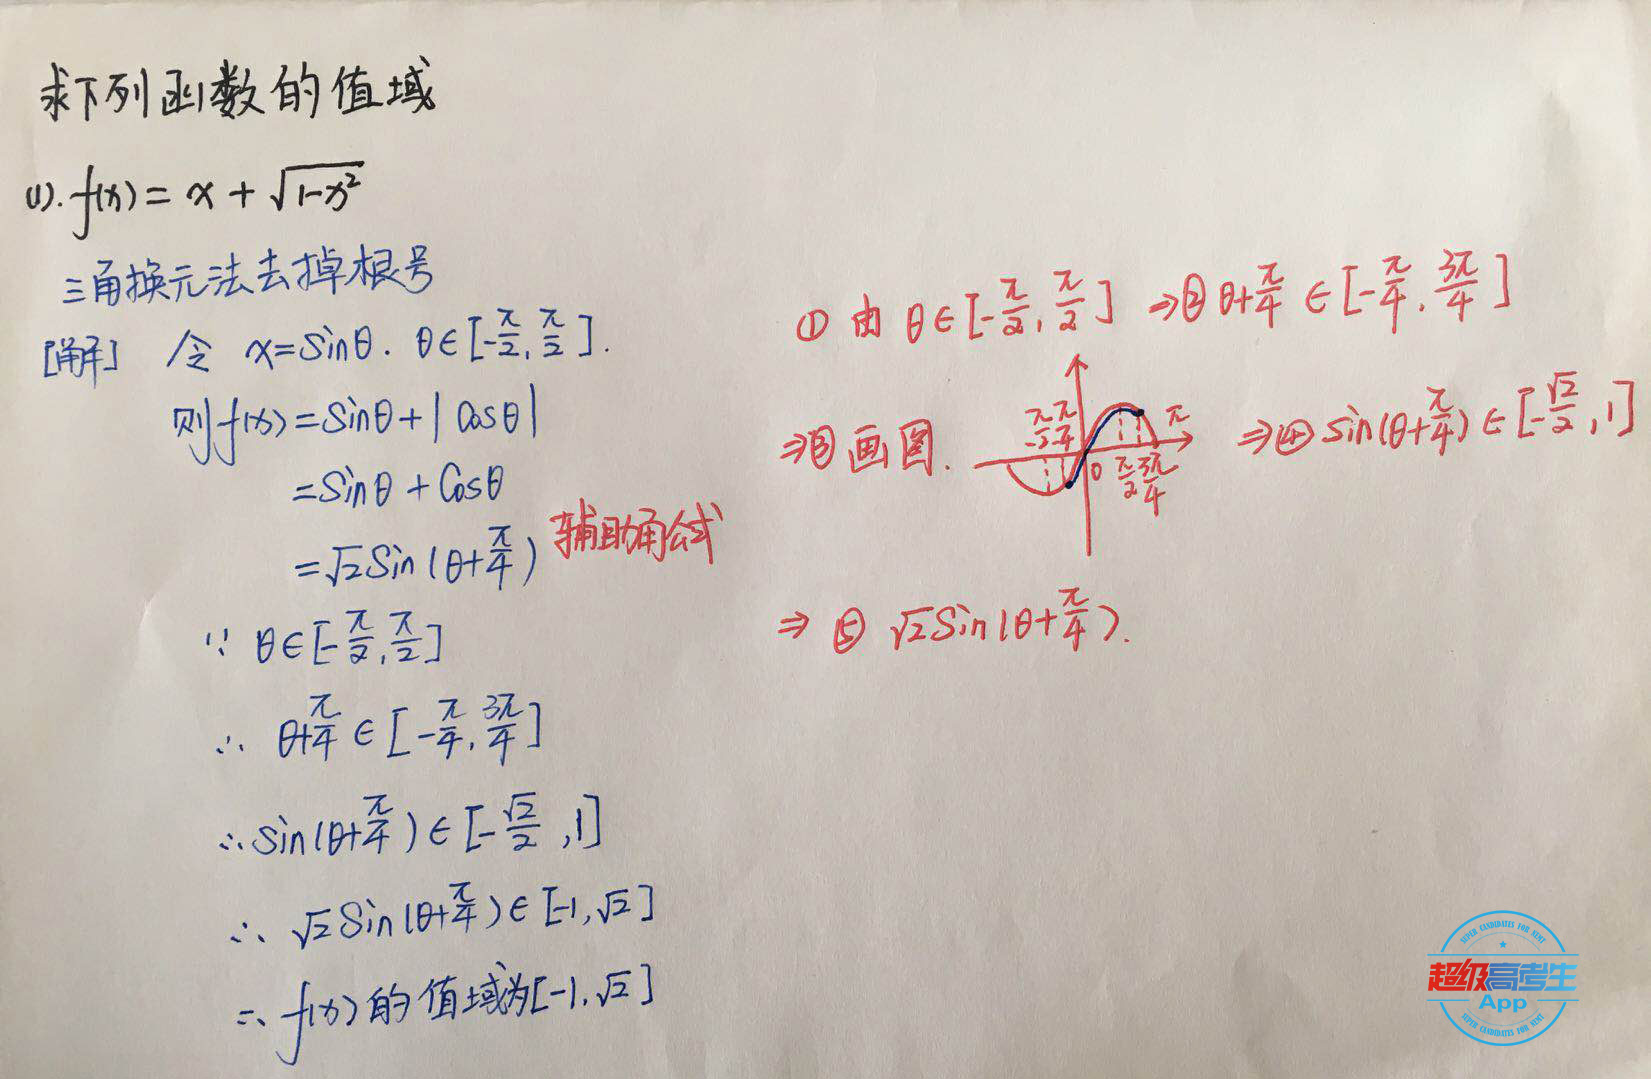 求下列函数的值域
(1). f(x) = x + √(1-x²)
三角换元法去掉根号
[解] 令 x=Sinθ. θ∈[-π/2, π/2].
则 f(x) = Sinθ + |Cosθ|
= Sinθ + Cosθ
= √2Sin(θ+π/4) 辅助角公式
∵ θ∈[-π/2, π/2]
∴ θ+π/4 ∈ [-π/4, 3π/4]
∴ Sin(θ+π/4) ∈ [-√2/2, 1]
∴ √2Sin(θ+π/4) ∈ [-1, √2]
∴ f(x)的值域为[-1, √2]
① 由 θ∈[-π/2, π/2] ⇒ ② θ+π/4 ∈ [-π/4, 3π/4]
⇒ ③ 画图. -π/2 -π/4 0 π/2 3π/4 π ⇒ ④ Sin(θ+π/4) ∈ [-√2/2, 1]
⇒ ⑤ √2Sin(θ+π/4).
SUPER CANDIDATES FOR NEMT
超级高考生
App
SUPER CANDIDATES FOR NEMT